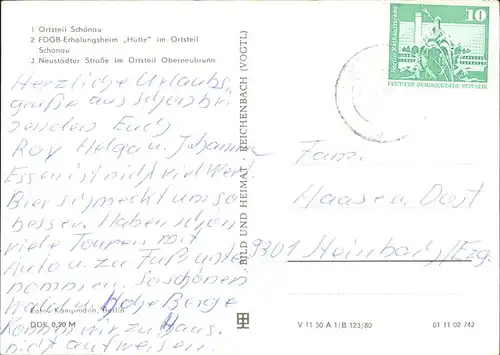 1 Ortsteil Schönau
2 FDGB-Erholungsheim „Hütte" im Ortsteil
Schönau
3 Neustädter Straße im Ortsteil Oberneubrunn
Herzliche Urlaubs
grüße aus Schönbr
senden Euch
Roy Helga u. Johanna
Essen ist nicht viel Wert.
Bier schmeckt um so
besser. Haben schon
viele Touren mit
Auto u. zu Fuß unter
nommen. So schönen
Wald u. hohe Berge
können wir zu Haus.
nicht aufweisen.
Foto: Kühnmann, Berlin
DDR 0,20 M
BILD UND HEIMAT REICHENBACH (VOGTL)
10
DEUTSCHE DEMOKRATISCHE REPUBLIK
Fam.
Haase u. Dost
9301 Steinbach/Erg.
V 11 50 A 1/B 123/80 01 11 02 742